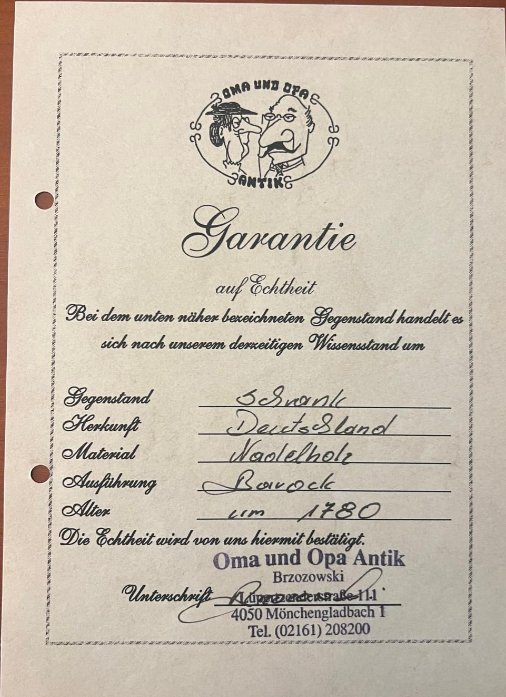 OMA UND OPA
ANTIK
Garantie
auf Echtheit
Bei dem unten näher bezeichneten Gegenstand handelt es
sich nach unserem derzeitigen Wissensstand um
Gegenstand Schrank
Herkunft Deutschland
Material Nadelholz
Ausführung Barock
Alter um 1780
Die Echtheit wird von uns hiermit bestätigt.
Oma und Opa Antik
Brzozowski
Unterschrift 111
4050 Mönchengladbach 1
Tel. (02161) 208200